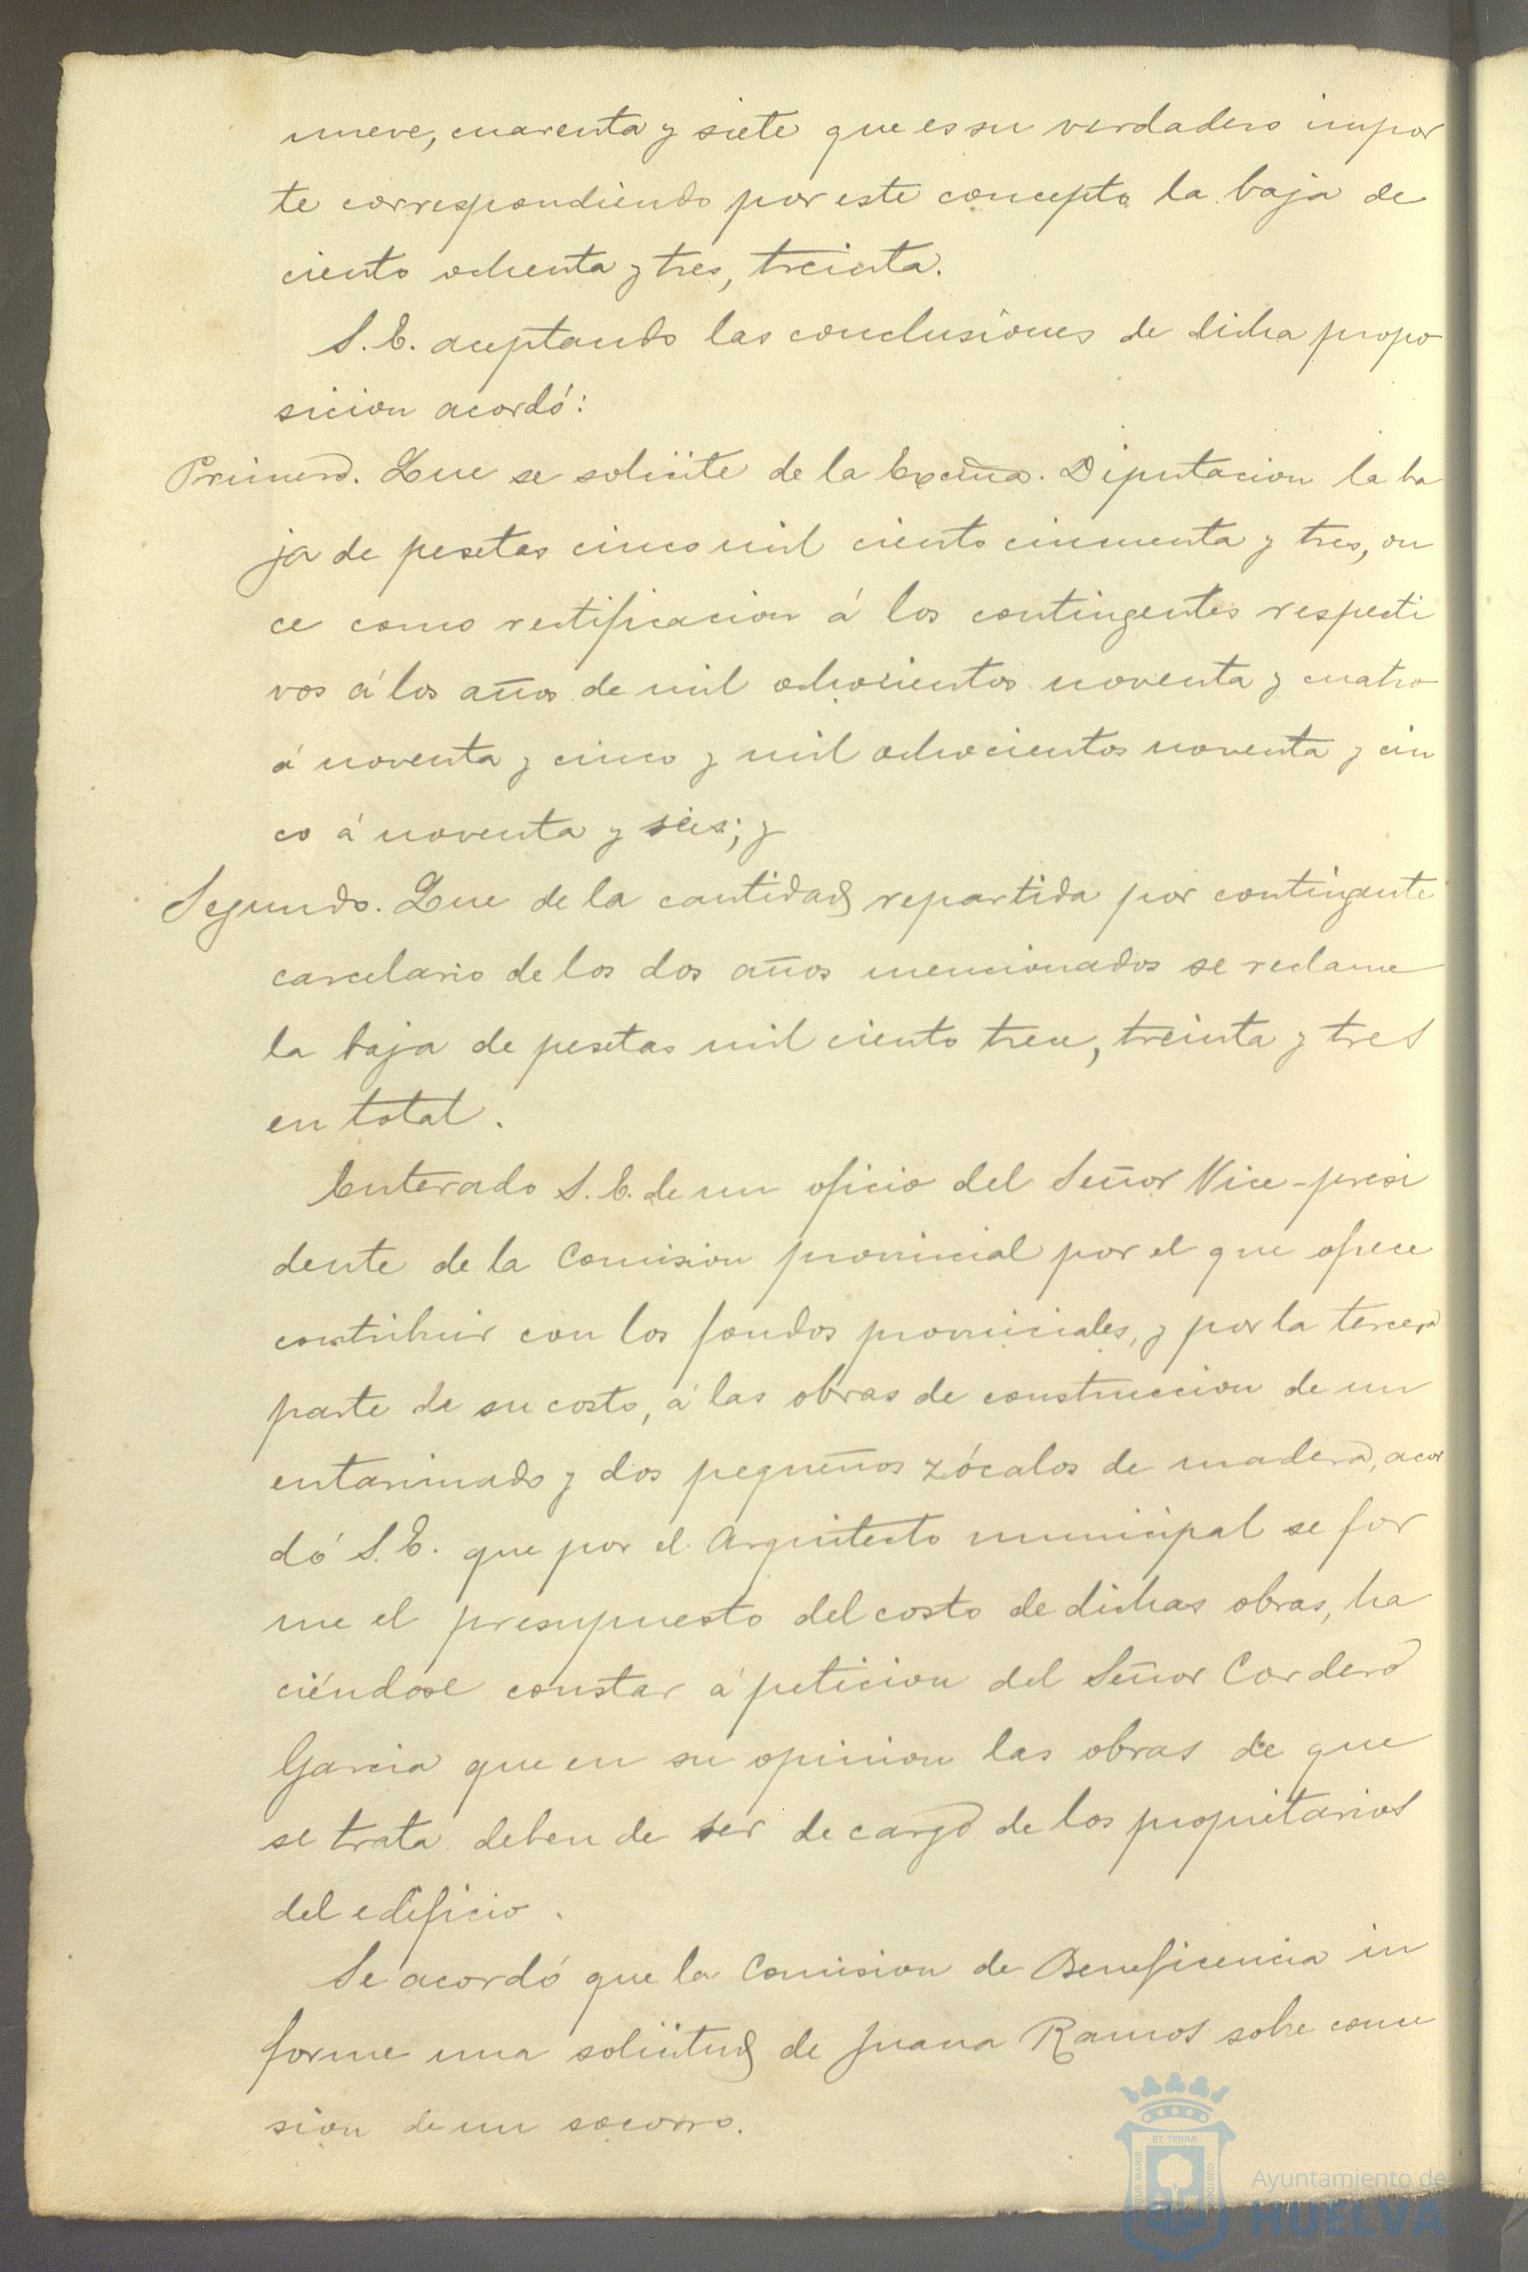 nueve, cuarenta y siete que es su verdadero impor
te correspondiendo por este concepto la baja de
ciento ochenta y tres, treinta.
S. E. aceptando las conclusiones de dicha propo
sicion acordó:
Primero. Que se solicite de la Excma. Diputacion la ba
ja de pesetas cinco mil ciento cincuenta y tres, on
ce como rectificacion á los contingentes respecti
vos á los años de mil ochocientos noventa y cuatro
á noventa y cinco y mil ochocientos noventa y cin
co á noventa y seis; y
Segundo. Que de la cantidad repartida por contingente
carcelario de los dos años mencionados se reclame
la baja de pesetas mil ciento trece, treinta y tres
en total.
Enterado S. E. de un oficio del Señor Vice-presi
dente de la Comision provincial por el que ofrece
contribuir con los fondos provinciales, y por la tercera
parte de su costo, á las obras de construccion de un
entarimado y dos pequeños zócalos de madera, acor
dó S. E. que por el Arquitecto municipal se for
me el presupuesto del costo de dichas obras, ha
ciéndose constar á peticion del Señor Cordero
Garcia que en su opinion las obras de que
se trata deben de ser de cargo de los propietarios
del edificio.
Se acordó que la Comision de Beneficencia in
forme una solicitud de Juana Ramos sobre conce
sion de un socorro.
ET TERRÆ
PORTUS MARIS
CUSTODIA
Ayuntamiento de
HUELVA